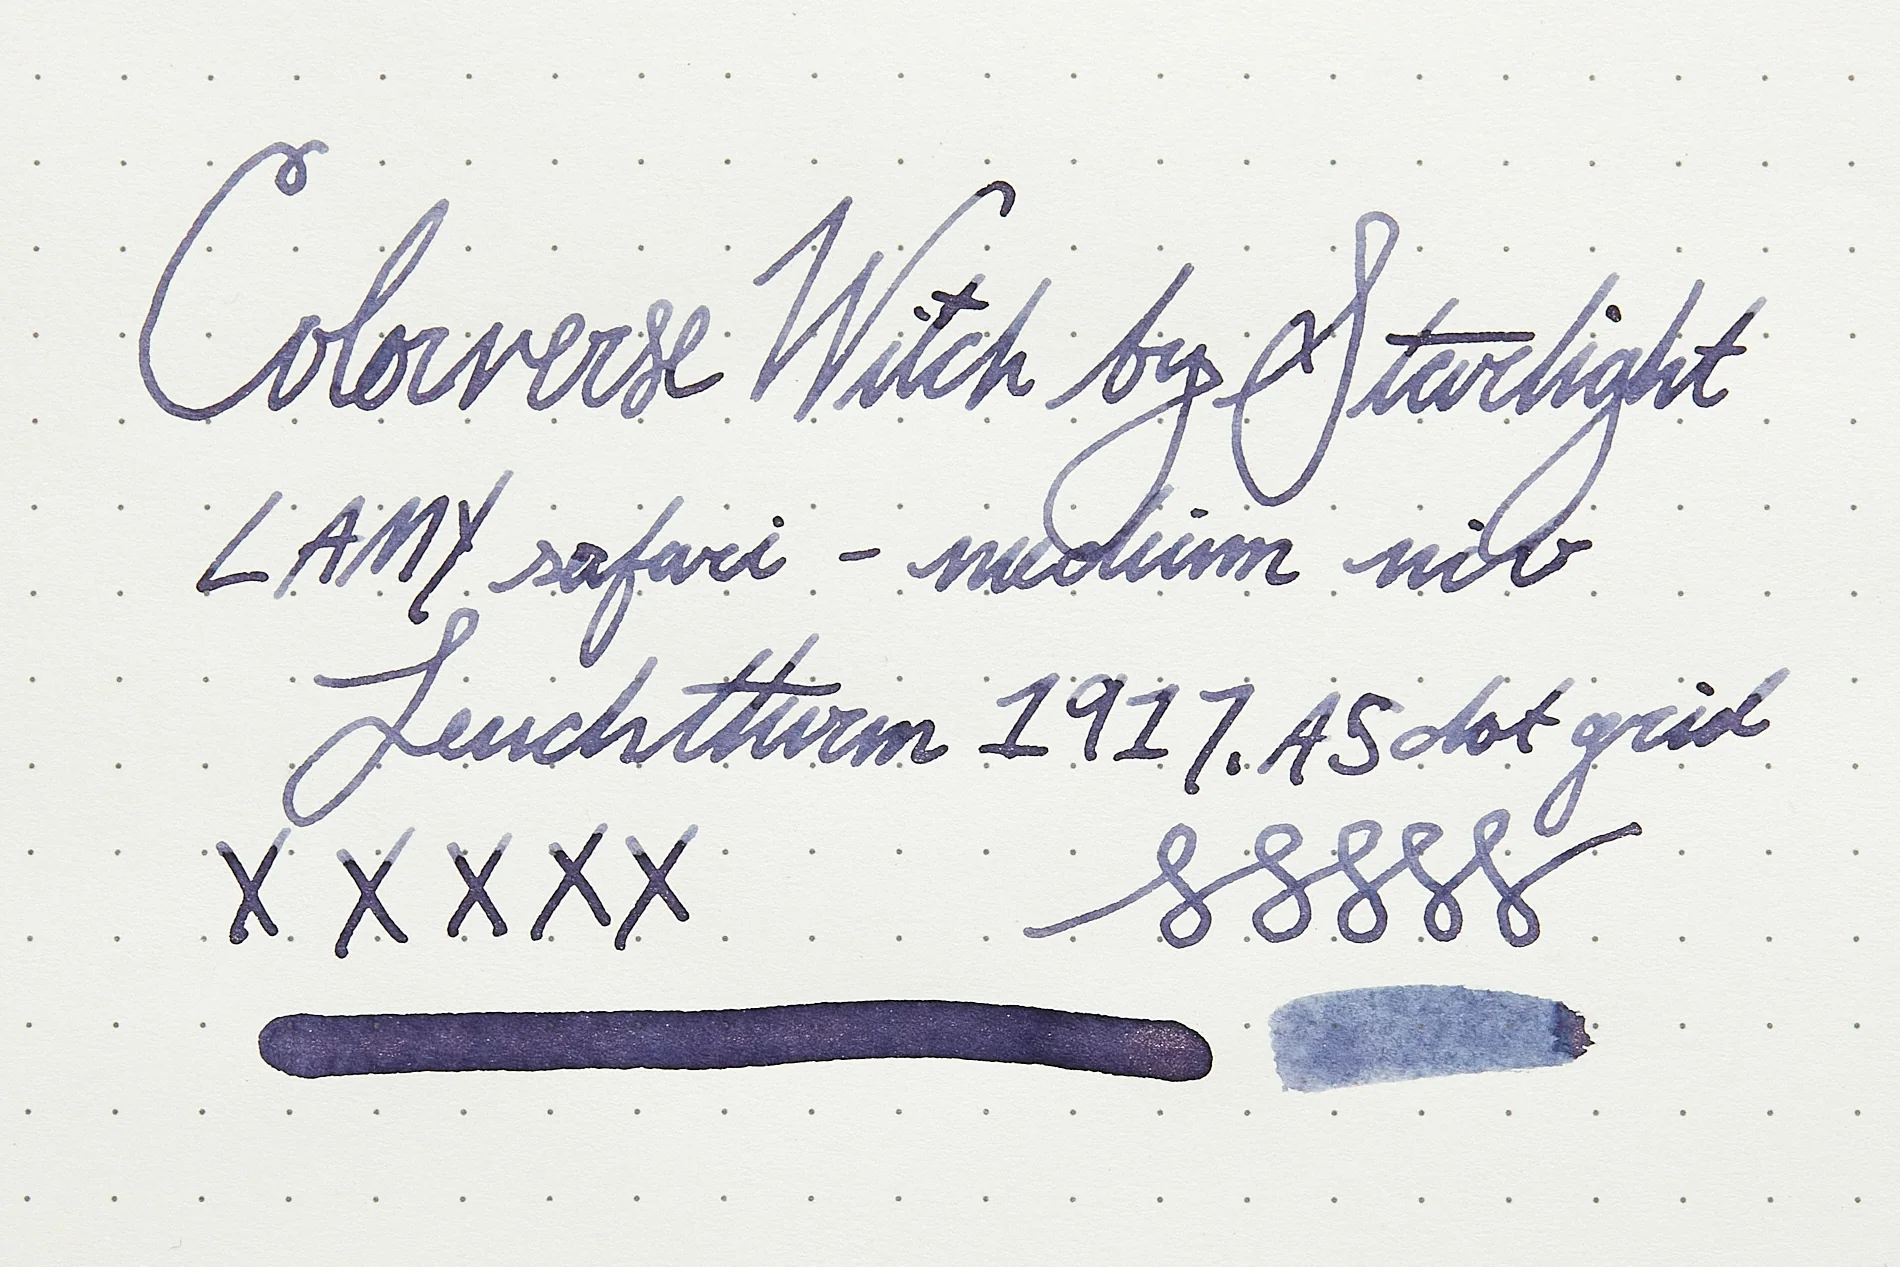 Colorverse Witch by Starlight
LAMY safari - medium nib
Leuchtturm 1917. A5 dot grid
X X X X X